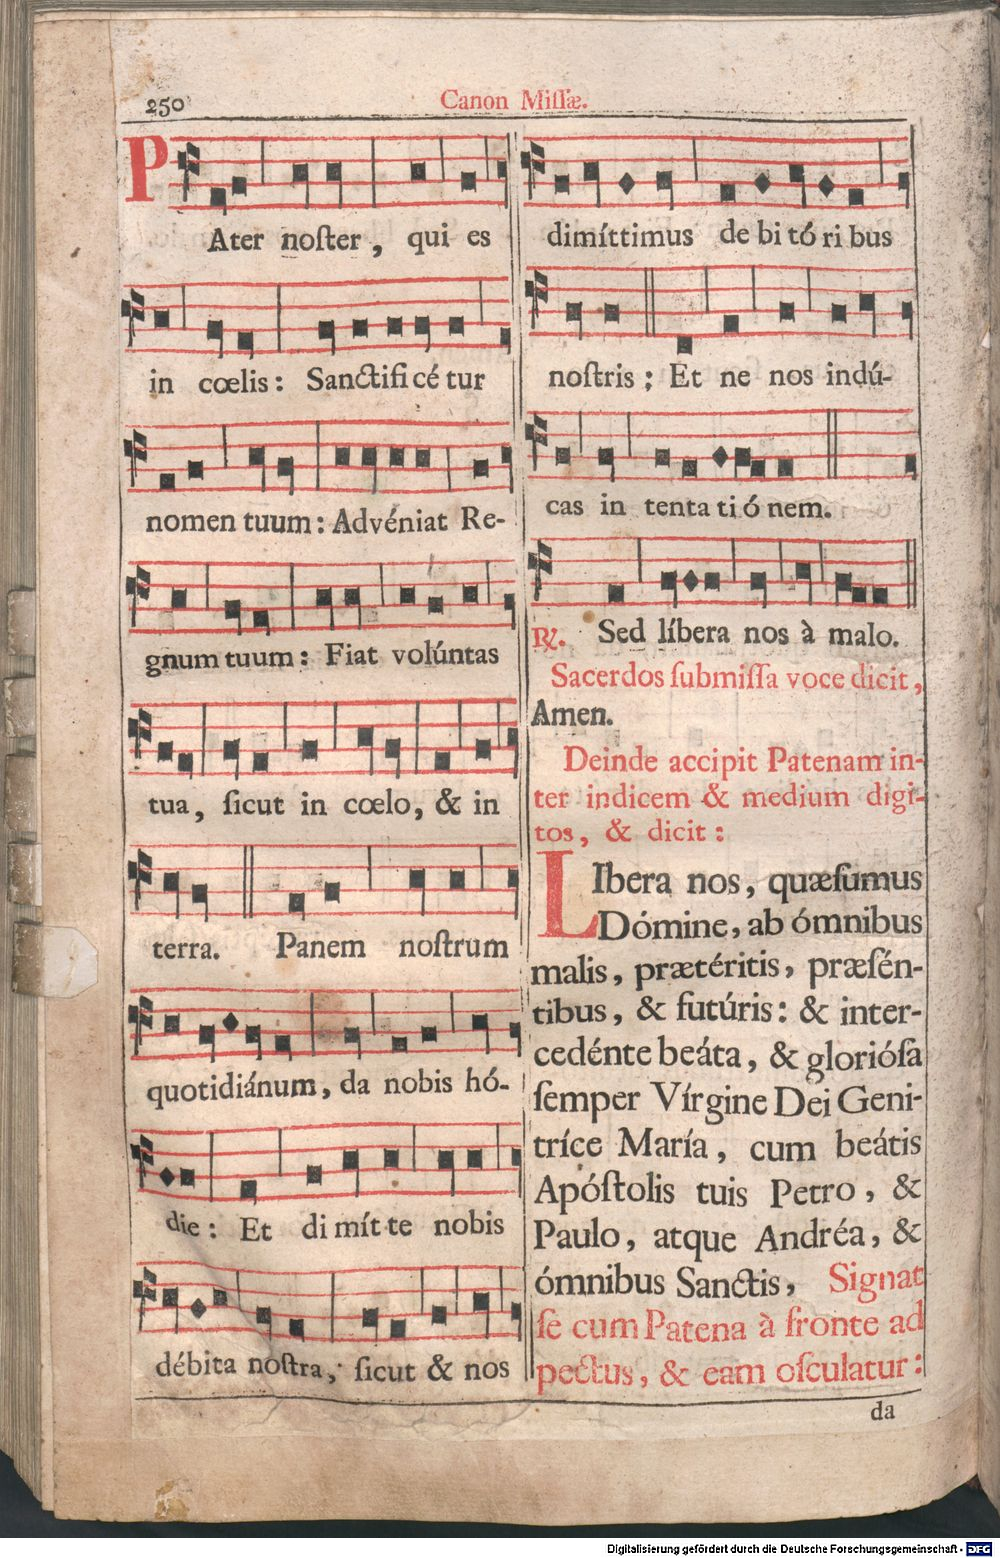 250
Canon Miſſæ.
PAter noſter, qui es
in cœlis: Sanctificétur
nomen tuum: Advéniat Re-
gnum tuum: Fiat volúntas
tua, ſicut in cœlo, & in
terra. Panem noſtrum
quotidiánum, da nobis hó-
die: Et dimítte nobis
débita noſtra, ſicut & nos
dimíttimus debitóribus
noſtris; Et ne nos indú-
cas in tentatiónem.
℟. Sed líbera nos à malo.
Sacerdos ſubmiſſa voce dicit,
Amen.
Deinde accipit Patenam in-
ter indicem & medium digi-
tos, & dicit:
LIbera nos, quæſumus
Dómine, ab ómnibus
malis, prætéritis, præſén-
tibus, & futúris: & inter-
cedénte beáta, & glorióſa
ſemper Vírgine Dei Geni-
tríce María, cum beátis
Apóſtolis tuis Petro, &
Paulo, atque Andréa, &
ómnibus Sanctis, Signat
ſe cum Patena à fronte ad
pectus, & eam oſculatur:
da
Digitalisierung gefördert durch die Deutsche Forschungsgemeinschaft - DFG